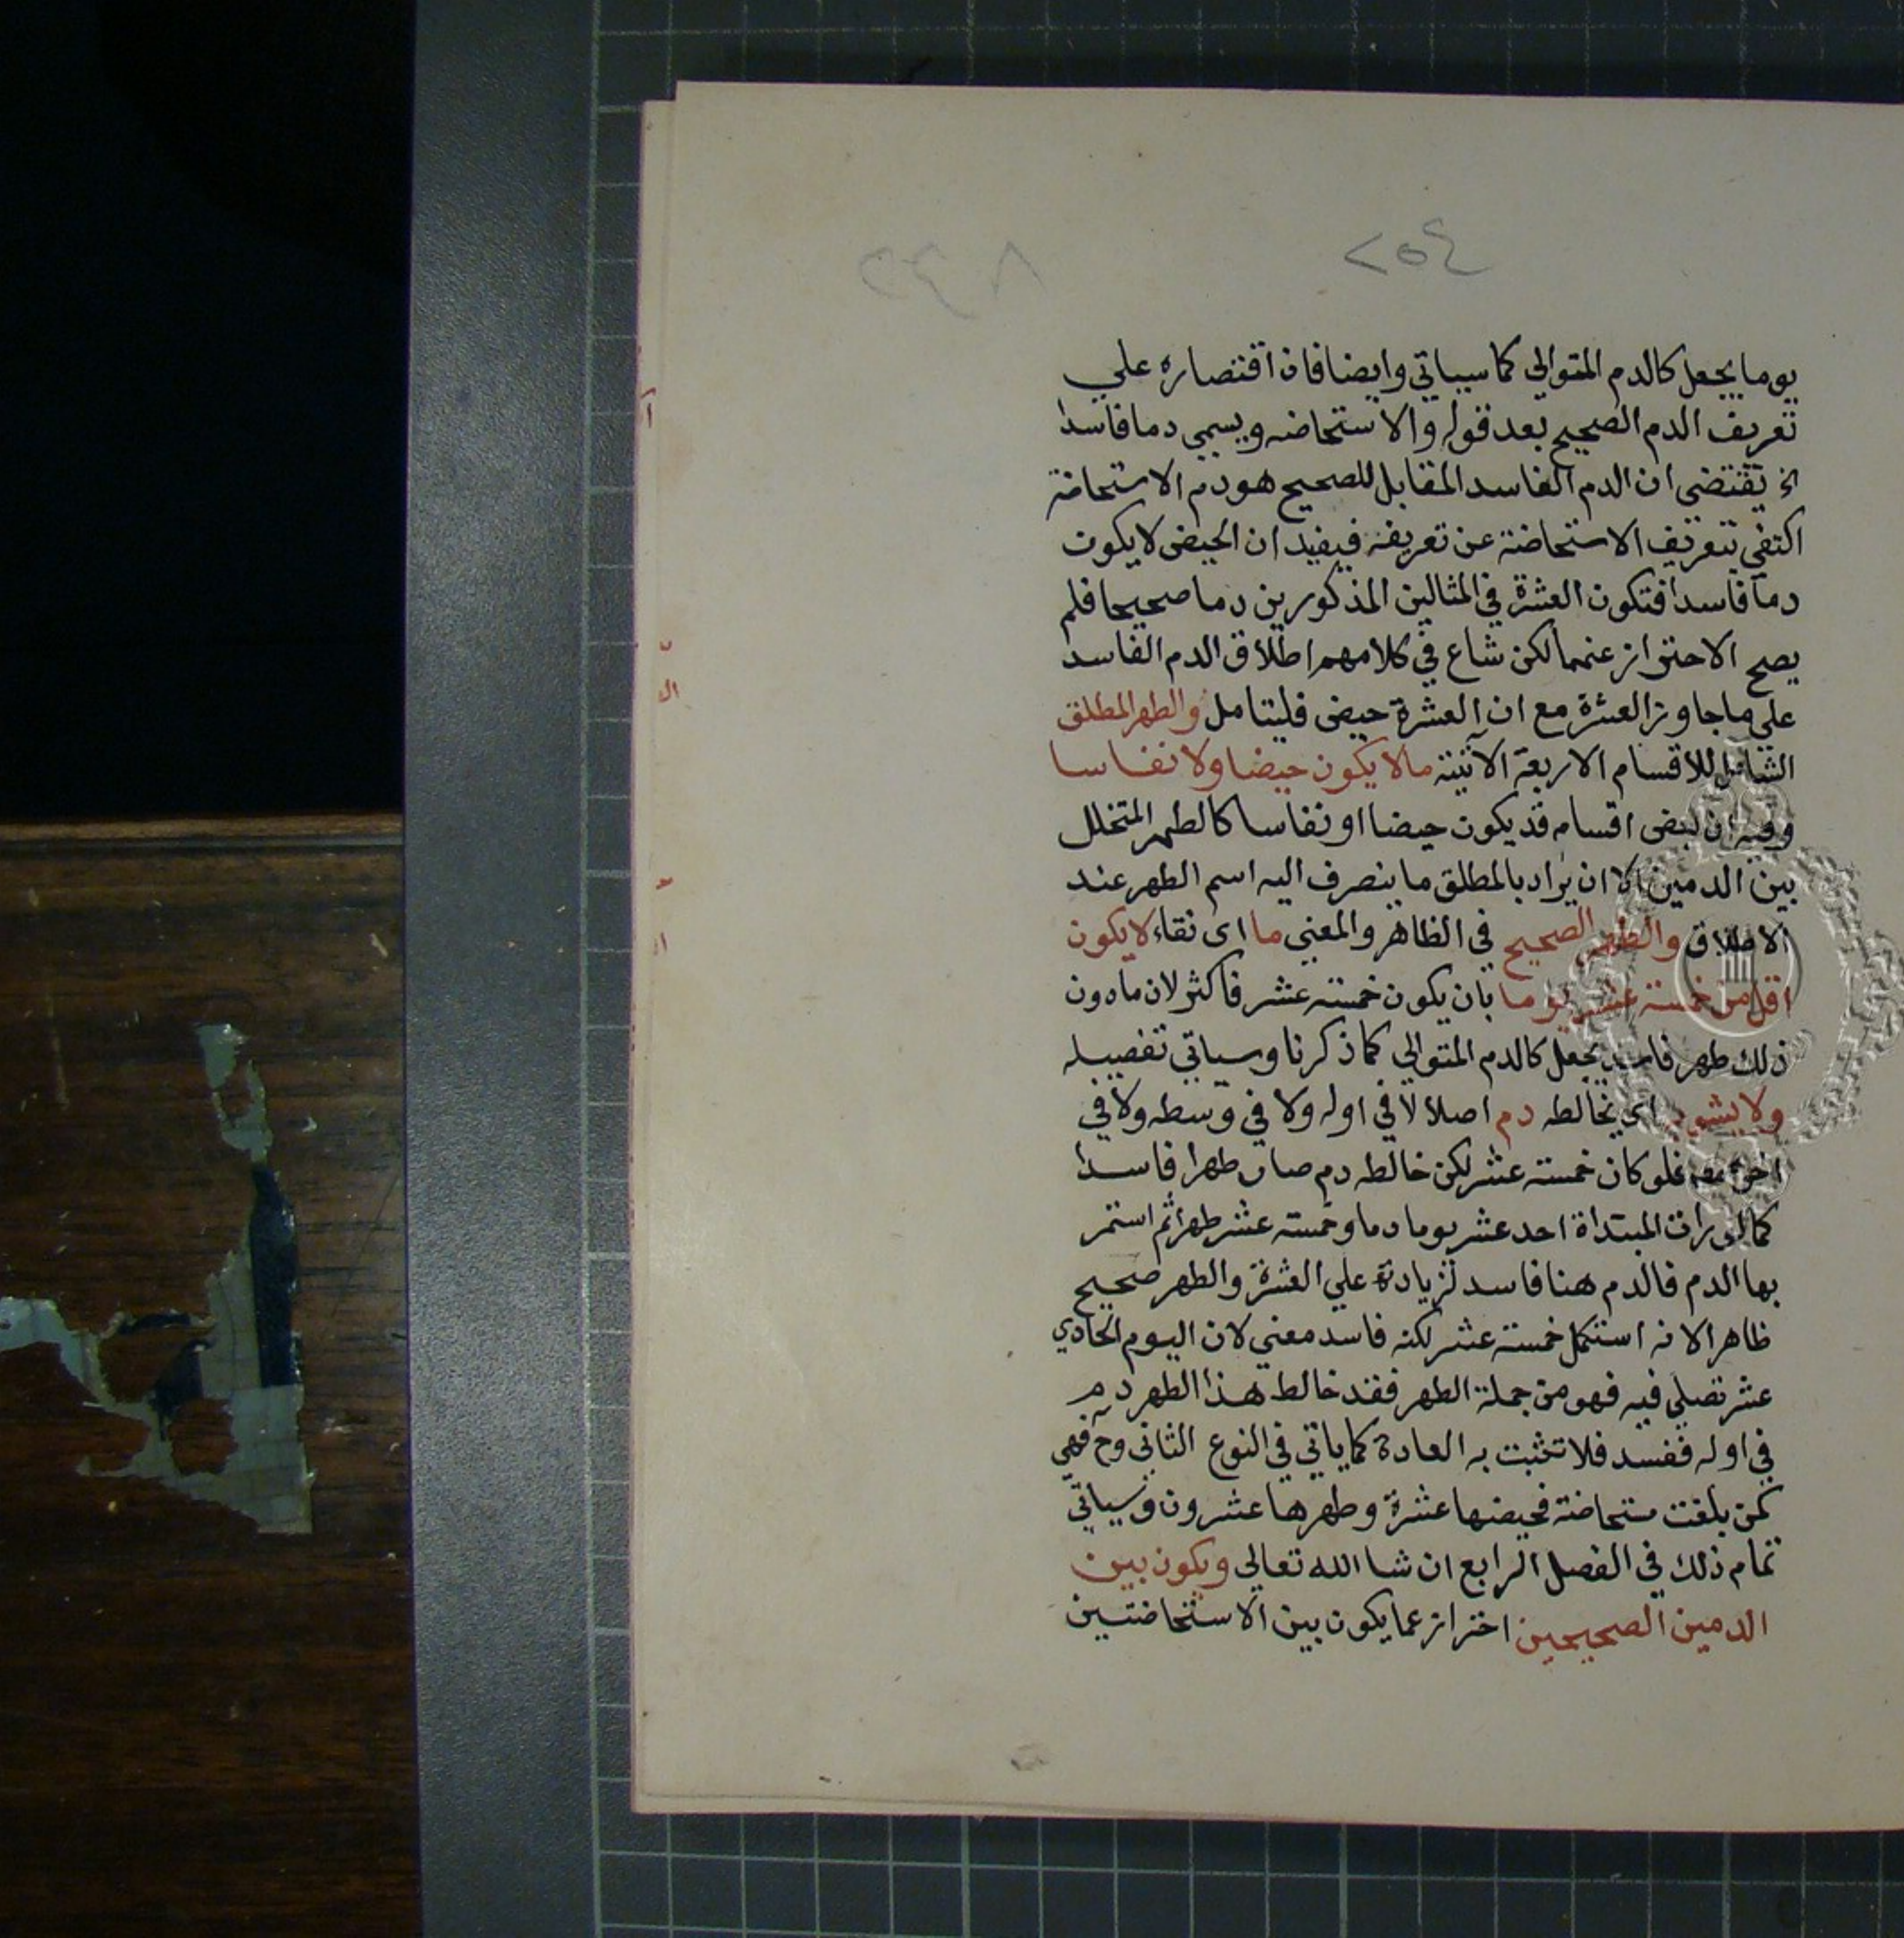 ٢٥٤
٢٤٨
يوما يجعل كالدم المتوالى كما سياتي وايضا فان اقتصاره علي
تعريف الدم الصحيح بعد قوله والاستحاضه ويسمي دما فاسدا
الخ يقتضى ان الدم الفاسد المقابل للصحيح هو دم الاستحاضة
اكتفي بتعريف الاستحاضة عن تعريفه فيفيد ان الحيض لا يكون
دما فاسدا فتكون العشرة في المثالين المذكورين دما صحيحا فلم
يصح الاحتراز عنهما لكن شاع في كلامهم اطلاق الدم الفاسد
علي ما جاوز العشرة مع ان العشرة حيض فليتامل والطهر المطلق
الشامل للاقسام الاربعة الآتية ما لا يكون حيضا ولا نفاسا
وفيه ان بعض اقسامه قد يكون حيضا او نفاسا كالطهر المتخلل
بين الدمين الا ان يراد بالمطلق ما ينصرف اليه اسم الطهر عند
الاطلاق والطهر الصحيح في الظاهر والمعني ما اى نقاء لا يكون
اقل من خمسة عشر يوما بان يكون خمسة عشر فاكثر لان ما دون
ذلك طهر فاسد يجعل كالدم المتوالى كما ذكرنا وسياتي تفصيله
ولا يشوبه اي يخالطه دم اصلا لا في اوله ولا في وسطه ولا في
اخره فلو كان خمسة عشر لكن خالطه دم صار طهرا فاسدا
كما لو رات المبتداة احد عشر يوما دما وخمسة عشر طهرا ثم استمر
بها الدم فالدم هنا فاسد لزيادته علي العشرة والطهر صحيح
ظاهرا لانه استكمل خمسة عشر لكنه فاسد معني لان اليوم الحادي
عشر تصلي فيه فهو من جملة الطهر فقد خالط هذا الطهر دم
في اوله ففسد فلا تثبت به العادة كما ياتي في النوع الثاني وح فهي
كمن بلغت مستحاضة فحيضها عشرة وطهرها عشرون وسياتي
تمام ذلك في الفصل الرابع ان شا الله تعالى ويكون بين
الدمين الصحيحين احتراز عما يكون بين الاستحاضتين